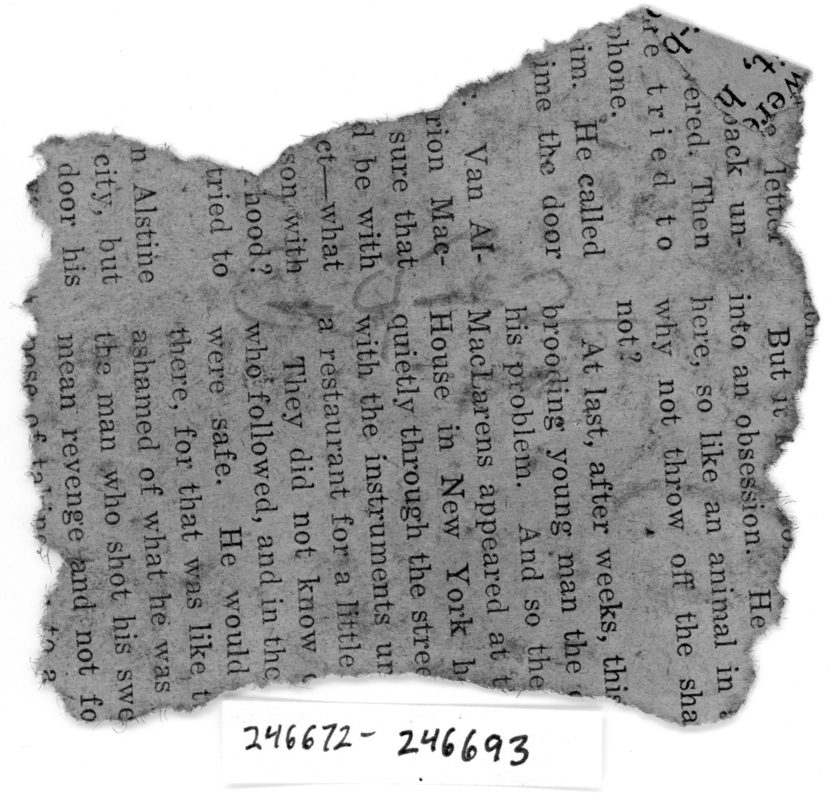 letter
back un-
ered. Then
re tried to
phone.
im. He called
ime the door
Van Al-
rion Mac-
sure that
d be with
ct—what
son with
hood?
tried to
n Alstine
city, but
door his
But it
into an obsession. He
here, so like an animal in
why not throw off the sha
not?
At last, after weeks, this
brooding young man the
his problem. And so the
MacLarens appeared at t
House in New York h
quietly through the stree
with the instruments ur
a restaurant for a little
They did not know
who followed, and in the
were safe. He would
there, for that was like t
ashamed of what he was
the man who shot his swe
mean revenge and not fo
pose of taking to a
246672- 246693